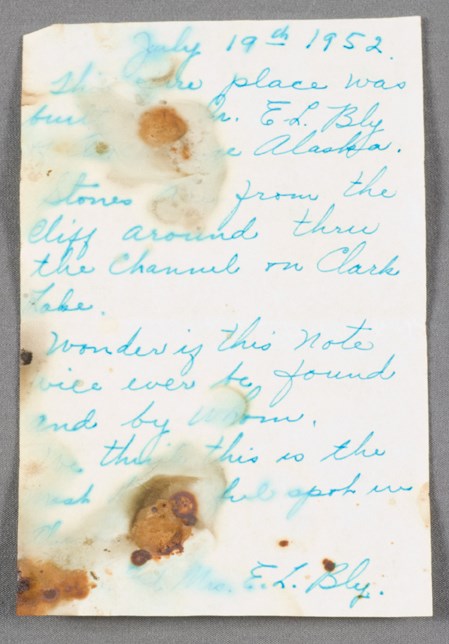 July 19th 1952.
place was
E.L. Bly
Alaska.
Stones from the
Cliff around thru
the Channel on Clark
Lake.
Wonder if this Note
will ever be found
and by whom.
this is the
spot in
Mrs. E.L. Bly.